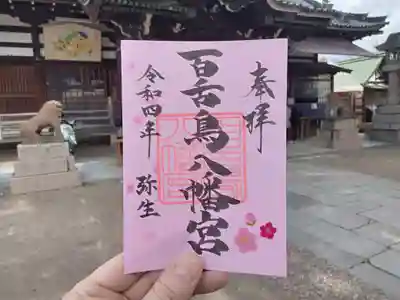 奉拝
百舌鳥八幡宮
令和四年 弥生